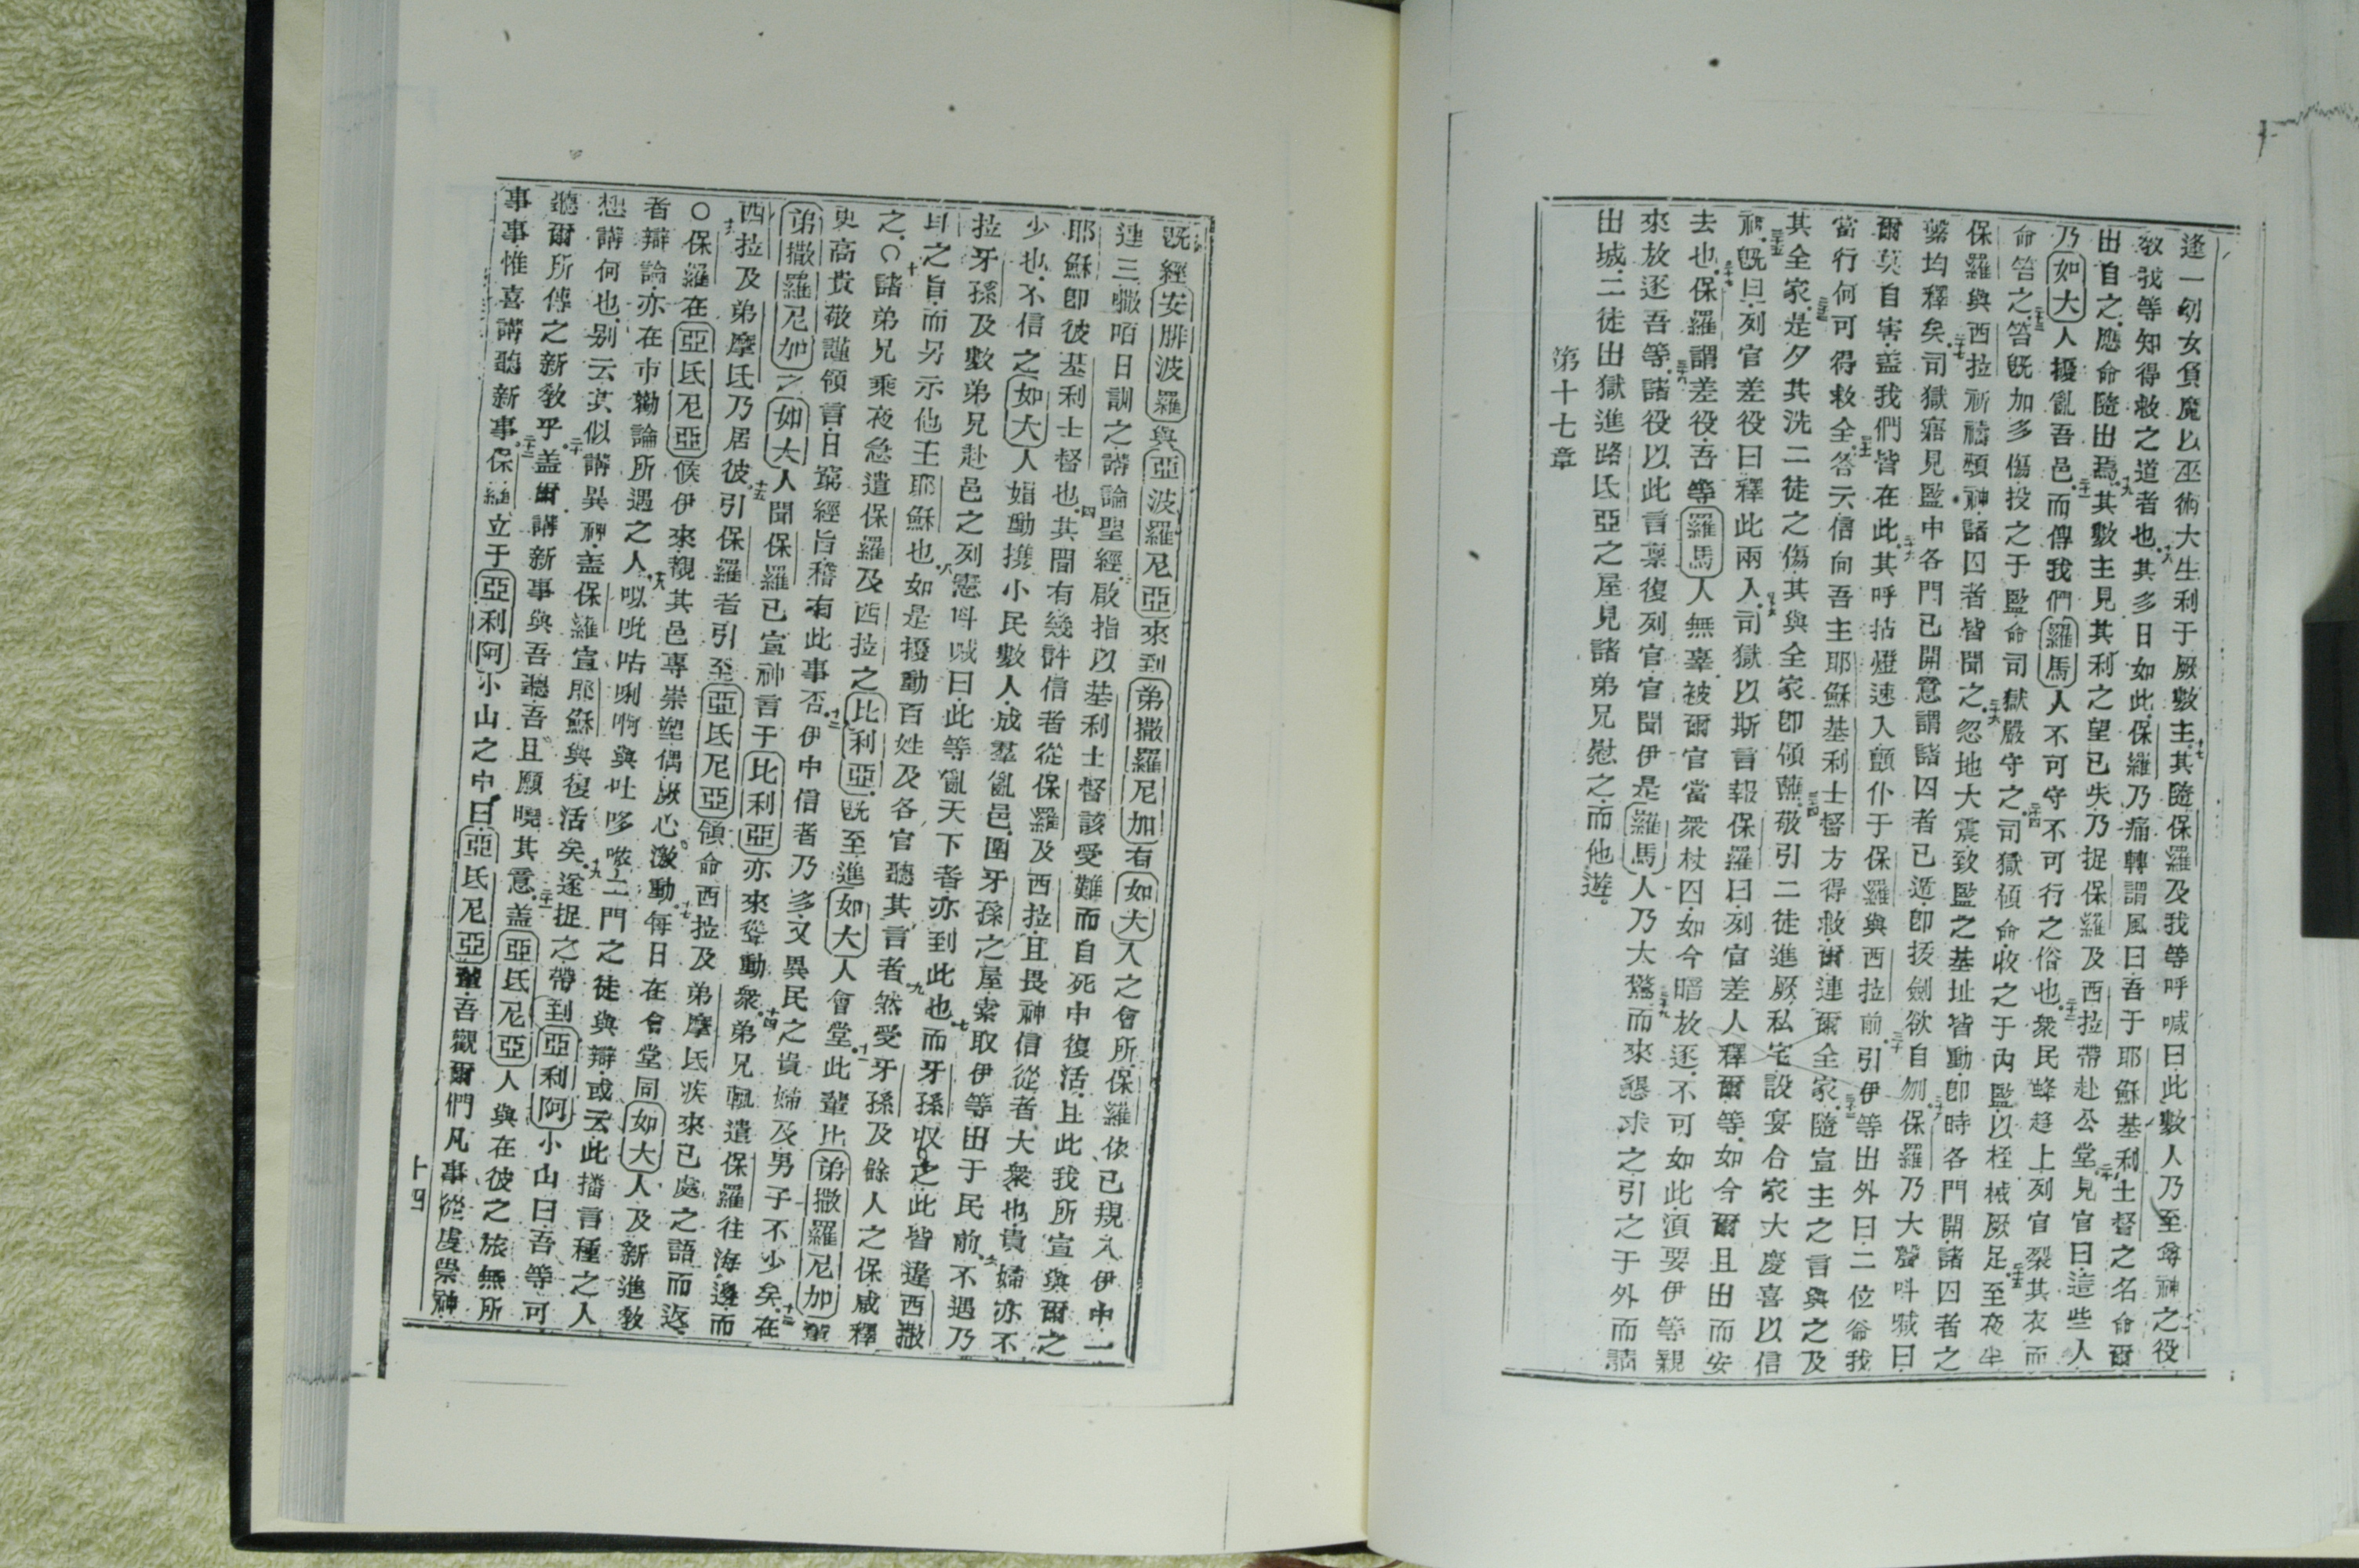 逢一幼女負魔以巫術大生利于厥數主十七其隨保羅及我等呼喊曰此數人乃至尊神之役
教我等知得救之道者也十八其多日如此保羅乃痛轉謂風曰吾于耶穌基利士督之名命爾
出自之應命隨出焉十九其數主見其利之望已失乃捉保羅及西拉帶赴公堂二十見官曰這些人
乃如大人擾亂吾邑二十一而傳我們羅馬人不可守不可行之俗也二十二衆民蜂趋上列官裂其衣而
命笞之二十三笞既加多傷投之于監命司獄嚴守之二十四司獄領命收之于內監以桎械厥足二十五至夜半
保羅與西拉祈禱頌神諸囚者皆聞之二十六忽地大震致監之基址皆動卽時各門開諸囚者之
繫均釋矣二十七司獄寤見監中各門已開意謂諸囚者已遁卽拔劍欲自刎二十八保羅乃大聲呌喊曰
爾莫自害盖我們皆在此二十九其呼拈燈速入顫仆于保羅與西拉前三十引伊等出外曰二位爺我
當行何可得救全三十一答云信向吾主耶穌基利士督方得救爾連爾全家三十二隨宣主之言與之及
其全家三十三是夕其洗二徒之傷其與全家卽領蘸三十四敬引二徒進厥私宅設宴合家大慶喜以信
神三十五旣日列官差役曰釋此兩人三十六司獄以斯言報保羅曰列官差人釋爾等如今爾且出而安
去也三十七保羅謂差役吾等羅馬人無辜被爾官當衆杖囚如今暗放逐不可如此湏要伊等親
來放逐吾等三十八諸役以此言稟復列官官聞伊是羅馬人乃大驚三十九而來懇求之引之于外而請
出城二徒出獄進路氐亞之屋見諸弟兄慰之而他遊
第十七章
旣經安腓波羅與亞波羅尼亞來到弟撒羅尼加有如大人之會所保羅依已規入伊中一
連三㗲咟日訓之講論聖經啟指以基利士督該受難而自死中復活且此我所宣與爾之
耶穌卽彼基利士督也四其間有幾許信者從保羅及西拉且畏神信從者大衆也貴婦亦不
少也不信之如大人娼動携小民數人成羣亂邑圍牙孫之屋索取伊等出于民前六不遇乃
拉牙孫及數弟兄赴邑之列憲呌喊曰此等亂天下者亦到此也七而牙孫收之此皆違西撒
耳之旨而另示他王耶穌也八如是擾動百姓及各官聽其言者九然受牙孫及餘人之保咸釋
之〇十諸弟兄乘夜急遣保羅及西拉之比利亞旣至進如大人會堂十一此輩比弟撒羅尼加輩
更高貴敬謹領言日窮經旨稽有此事否十二伊中信者乃多又異民之貴婦及男子不少矣十三在
弟撒羅尼加之如大人聞保羅已宣神言于比利亞亦來聳動衆十四弟兄輒遣保羅往海邊而
西拉及弟摩氐乃居彼十五引保羅者引至亞氐尼亞領命西拉及弟摩氐疾來已處之語而返
〇十六保羅在亞氐尼亞候伊來覩其邑專崇塑偶厥心激動十七每日在會堂同如大人及新進教
者辯論亦在市塲論所遇之人十八以吡咕唎啊與吐哆嗞二門之徒與辯或云此播言種之人
想講何也别云其似講異神盖保羅宣耶穌與復活矣十九遂捉之帶到亞利阿小山曰吾等可
聽爾所傳之新教乎二十盖爾講新事與吾聽吾且願曉其意二十一盖亞氐尼亞人與在彼之旅無所
事事惟喜講聽新事二十二保羅立于亞利阿小山之中曰亞氐尼亞輩吾觀爾們凡事從虔崇神
十四